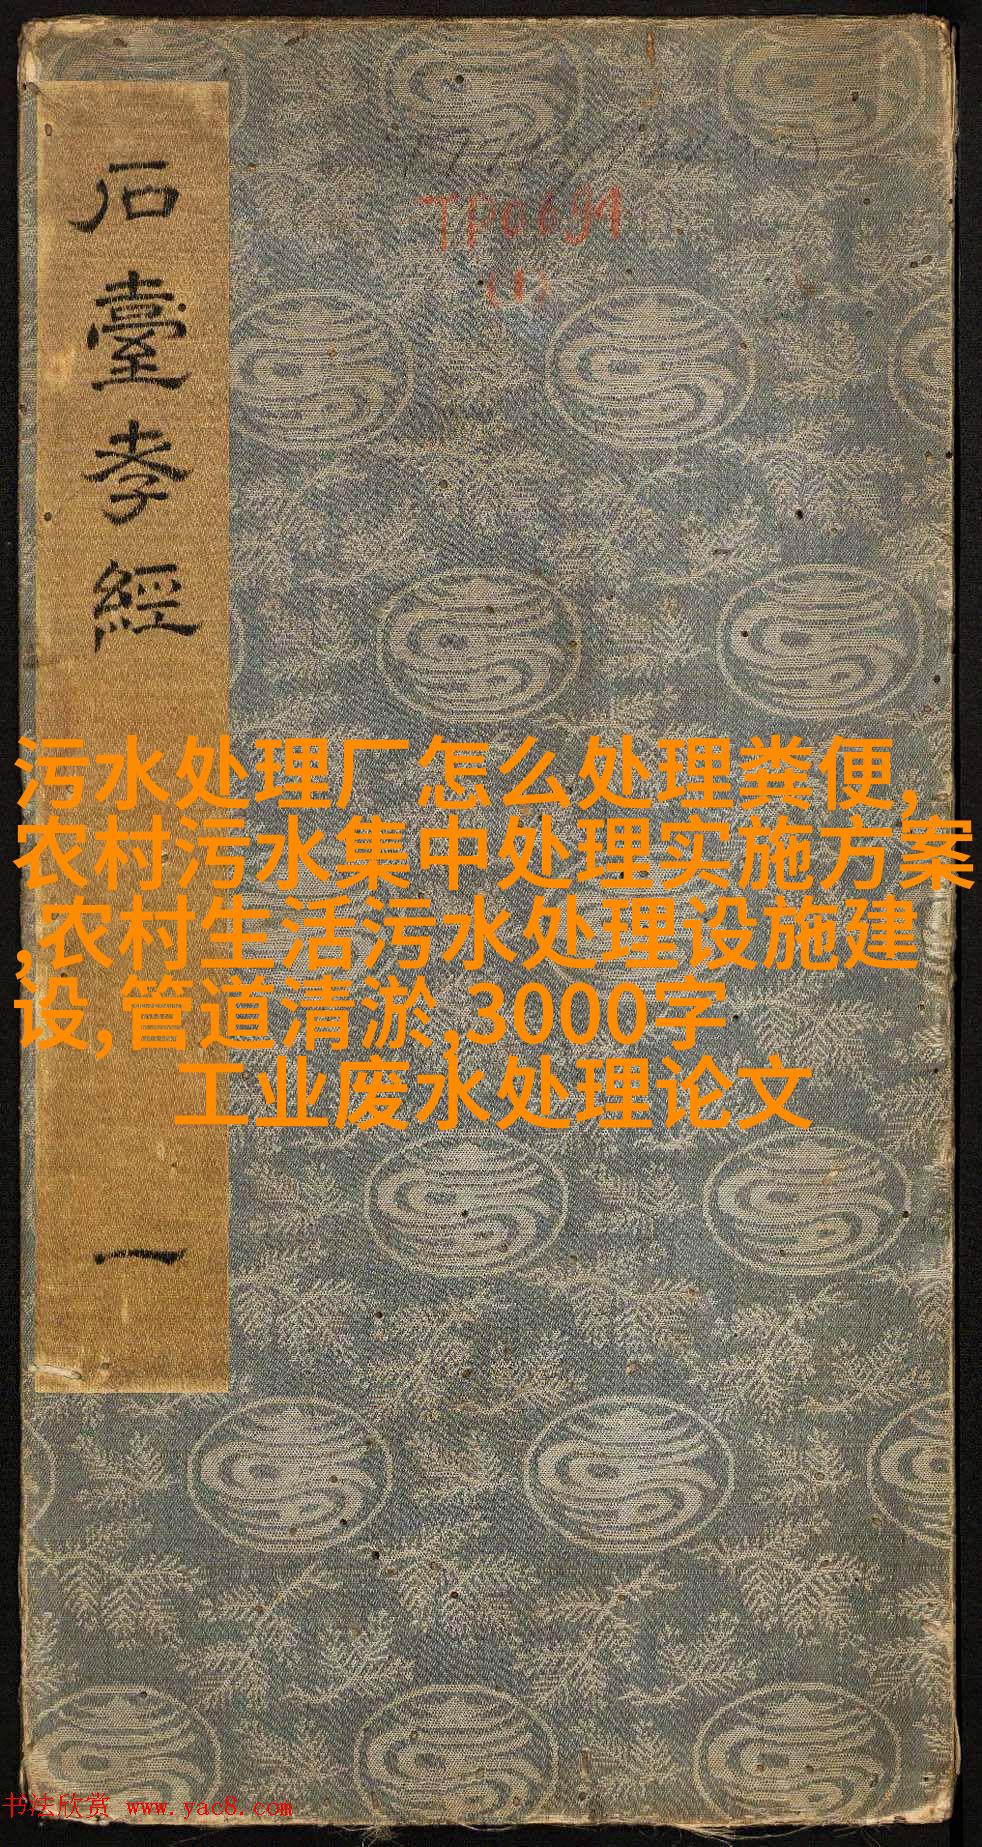 石臺孝經
一
TP0691
(1)
污水处理厂怎么处理粪便,
农村污水集中处理实施方案
,农村生活污水处理设施建
设,管道清淤,3000字
工业废水处理论文
书法欣赏 www.yac8.com